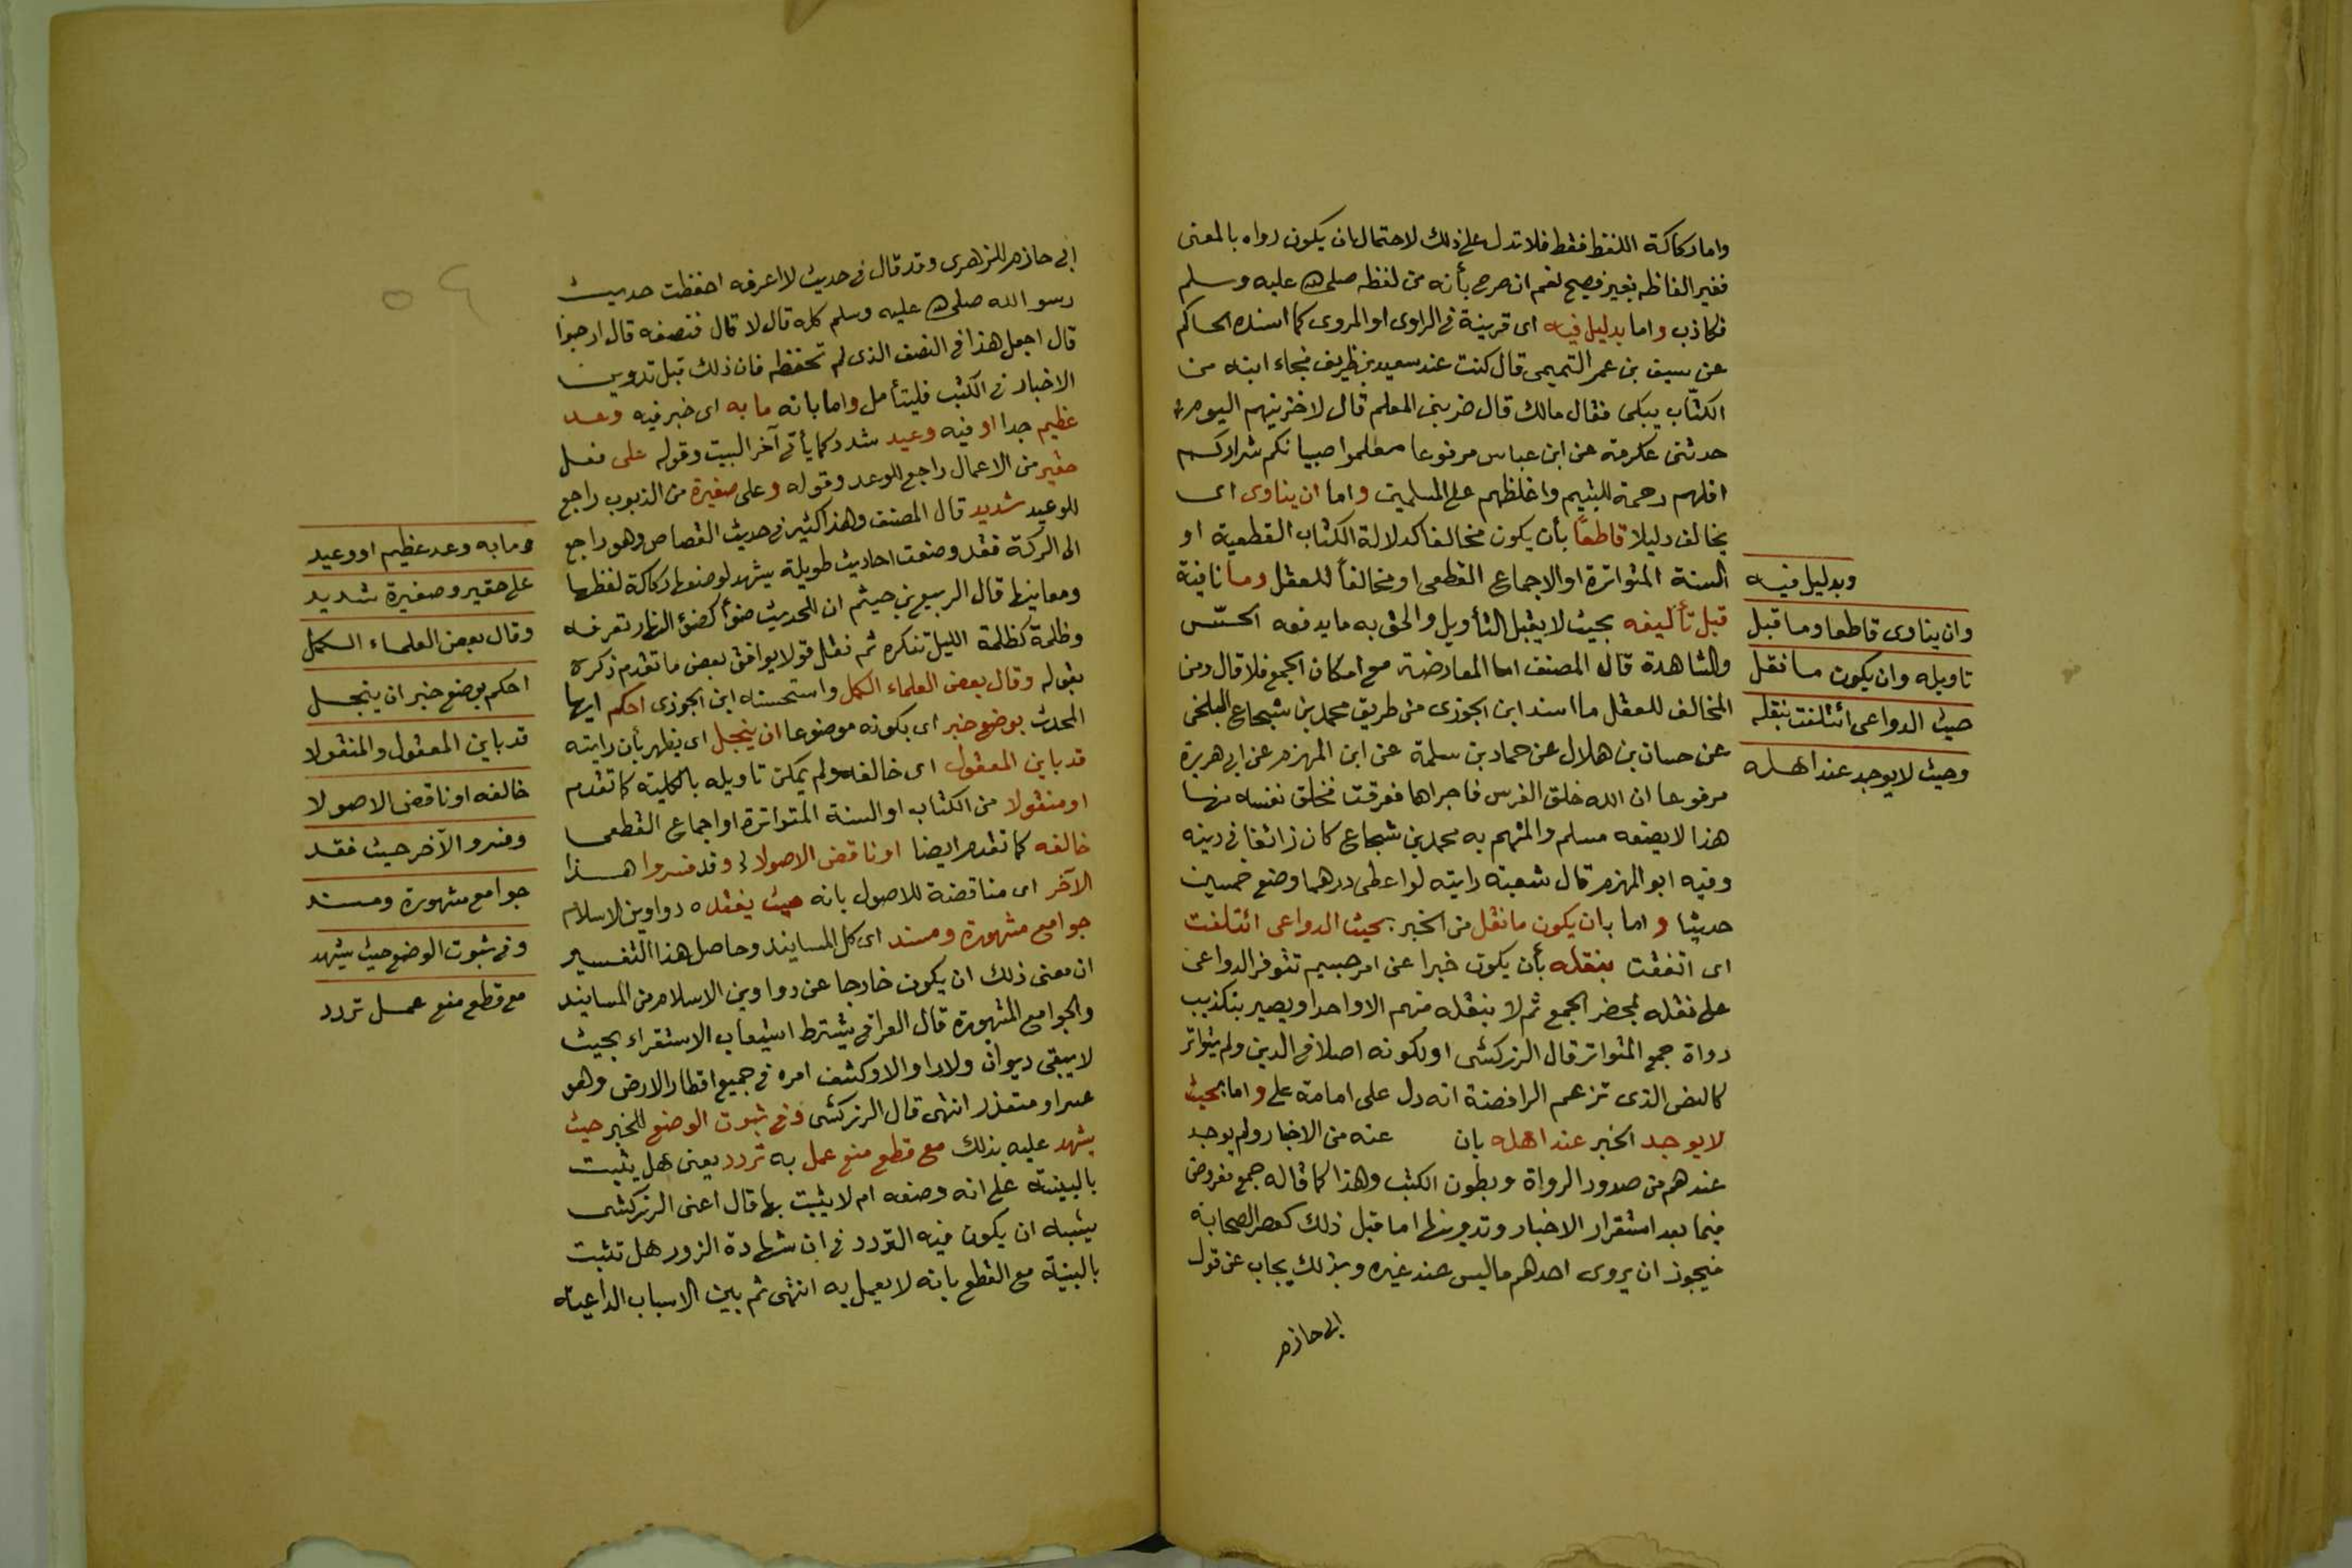 واما ركاكة اللفظ فقط فلا تدل على ذلك لاحتمال ان يكون رواه بالمعنى
فغير الفاظه بغير فصيح نعم ان صرح بأنه من لفظه صلى الله عليه وسلم
فكاذب واما بدليل فيه اى قرينة فى الراوى او المروى كما اسنده الحاكم
عن سيف بن عمر التميمى قال كنت عند سعيد بن ظريف فجاء ابنه من
الكتّاب يبكى فقال مالك قال ضربنى المعلم قال لاخزينهم اليوم
حدثنى عكرمة عن ابن عباس مرفوعا معلموا صبيانكم شراركم
اقلهم رحمة لليتيم واغلظهم على المسلمين واما ان يناوى اى
يخالف دليلا قاطعًا بأن يكون مخالفا كدلالة الكتاب القطعية او
السنة المتواترة او الاجماع القطعى او مخالفاً للعقل وما نافية
قبل تأليفه بحيث لا يقبل التأويل والحق به ما يدفعه الحسّ
والشاهدة قال المصنف اما المعارضة مع امكان الجمع فلا قال ومن
المخالف للعقل ما اسند ابن الجوزى من طريق محمد بن شجاع البلخى
عن حسان بن هلال عن حماد بن سلمة عن ابن المهزم عن ابى هريرة
مرفوعا ان الله خلق الفرس فاجراها فعرقت فخلق نفسه منها
هذا لا يضعه مسلم والمتهم به محمد بن شجاع كان زائغا فى دينه
وفيه ابو المهزم قال شعبة رايته لو اعطى درهما وضع خمسين
حديثا واما بان يكون ما نقل من الخبر بحيث الدواعى ائتلفت
اى اتفقت بنقله بأن يكون خبرا عن امر جسيم تتوفر الدواعى
على نقله بمحضر الجمع ثم لا ينقله منهم الا واحد او يصير بتكذيب
رواة جمع المتواتر قال الزركشى او لكونه اصلا فى الدين ولم يتواتر
كالنص الذى تزعم الرافضة انه دل على امامة على واما بحيث
لا يوجد الخبر عند اهله بان عنه من الاخبار ولم يوجد
عندهم من صدور الرواة وبطون الكتب وهذا كما قاله جمع مفروض
فيما بعد استقرار الاخبار وتدوينها اما قبل ذلك كعصر الصحابة
فيجوز ان يروى احدهم ما ليس عند غيره وبذلك يجاب عن قول
ابى حازم
وبدليل فيه
وان يناوى قاطعا وما قبل
تاويله وان يكون ما نقل
حيث الدواعى ائتلفت بنقله
وحيث لا يوجد عند اهله
ابى حازم للزهرى وقد قال فى حديث لا اعرفه احفظت حديث
رسو الله صلى الله عليه وسلم كله قال لا قال فنصفه قال ارجوا
قال اجعل هذا فى النصف الذى لم تحفظه فان ذلك قبل تدوين
الاخبار فى الكتب فليتأمل واما بانه ما به اى خبر فيه وعد
عظيم جدا او فيه وعيد شدد كما يأتى آخر البيت وقوله على فعل
حقير من الاعمال راجع للوعد وقوله وعلى صغيرة من الذبوب راجع
للوعيد شديد قال المصنف وهذا كثير فى حديث القصاص وهو راجع
الى الركة فقد وضعت احاديث طويلة يشهد لوضعها ركاكة لفظها
ومعانيها قال الربيع بن خيثم ان للحديث ضوأ كضؤ النهار تعرفه
وظلمة كظلمة الليل تنكره ثم نقل قولا يوافق بعض ما تقدم ذكره
بقوله وقال بعض العلماء الكمل واستحسنه ابن الجوزى احكم ايها
المحدث بوضع خبر اى بكونه موضوعا ان ينجل اى يظهر بأن رايته
قد باين المعقول اى خالفه ولم يمكن تاويله بالكلية كما تقدم
او منقولا من الكتاب او السنة المتواترة او اجماع القطعى
خالفه كما تقدم ايضا او ناقض الاصولا وقد فسروا هذا
الآخر اى مناقضة للاصول بانه حيث يفقده دواوين الاسلام
جوامع مشهورة ومسند اى كل المسانيد وحاصل هذا التفسير
ان معنى ذلك ان يكون خارجا عن دواوين الاسلام من المسانيد
والجوامع المشهورة قال العراقى يشترط استيعاب الاستقراء بحيث
لا يبقى ديوان ولا راو الا وكشف امره فى جميع اقطار الارض وهو
عسر او متعذر انتهى قال الزركشى وفى ثبوت الوضع للخبر حيث
يشهد عليه بذلك مع قطع منع عمل به تردد يعنى هل يثبت
بالبينة على انه وضعه ام لا يثبت بها قال اعنى الزركشى
يشبه ان يكون فيه التردد فى ان شهادة الزور هل تثبت
بالبينة مع القطع بانه لا يعمل به انتهى ثم بين الاسباب الداعية
وما به وعد عظيم او وعيد
على حقير وصغيرة شديد
وقال بعض العلماء الكمل
احكم بوضع خبر ان ينجل
قد باين المعقول والمنقولا
خالفه او ناقض الاصولا
وفسروا الآخر حيث فقد
جوامع مشهورة ومسند
وفى ثبوت الوضع حيث يشهد
مع قطع منع عمل تردد